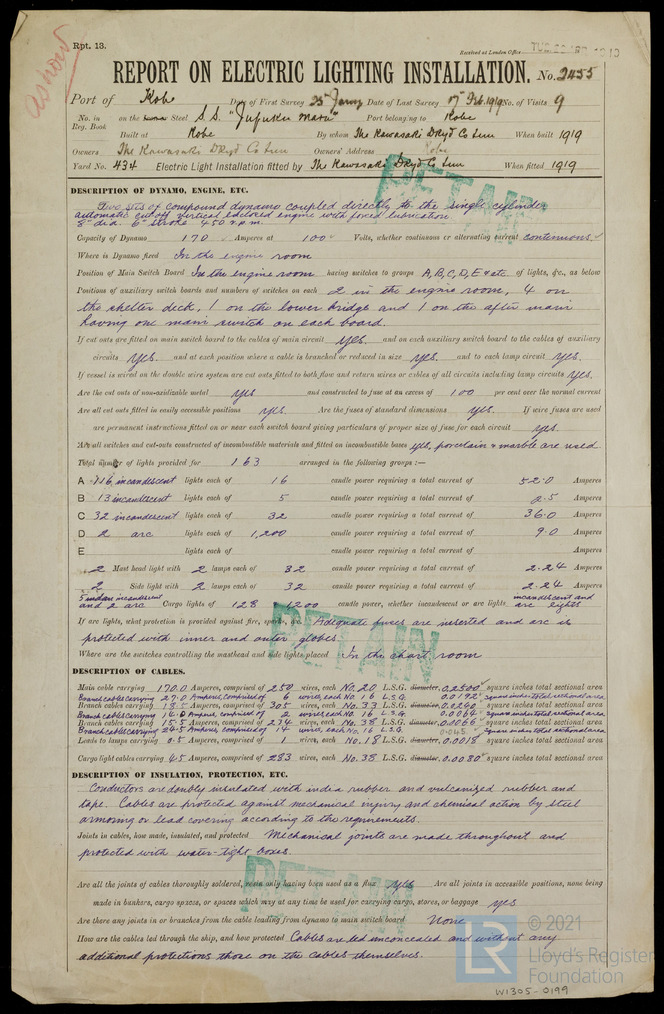 Rpt. 13.
Received at London Office
REPORT ON ELECTRIC LIGHTING INSTALLATION. No. 2455
Port of Kobe Date of First Survey 25th Jany Date of Last Survey 17th Feb. 1919 No. of Visits 9
No. in on the Iron Steel S.S. "Jufuku Maru" Port belonging to Kobe
Reg. Book Built at Kobe By whom The Kawasaki DkYd Co Lim When built 1919
Owners The Kawasaki DkYd Co Lim Owners' Address Kobe
Yard No. 434 Electric Light Installation fitted by The Kawasaki DkYd Co Lim When fitted 1919
DESCRIPTION OF DYNAMO, ENGINE, ETC.
Two sets of compound dynamo coupled directly to the single cylinder
automatic cutoff vertical enclosed engine with forced lubrication
8" dia. 6" stroke 450 r.p.m.
Capacity of Dynamo 170 Amperes at 100 Volts, whether continuous or alternating current continuous
Where is Dynamo fixed In the engine room
Position of Main Switch Board In the engine room having switches to groups A, B, C, D, E & etc of lights, &c., as below
Positions of auxiliary switch boards and numbers of switches on each 2 in the engine room, 4 on
the shelter deck, 1 on the lower bridge and 1 on the after main
having one main switch on each board.
If cut outs are fitted on main switch board to the cables of main circuit yes. and on each auxiliary switch board to the cables of auxiliary
circuits yes. and at each position where a cable is branched or reduced in size yes. and to each lamp circuit yes.
If vessel is wired on the double wire system are cut outs fitted to both flow and return wires or cables of all circuits including lamp circuits yes.
Are the cut outs of non-oxidizable metal yes and constructed to fuse at an excess of 100 per cent over the normal current
Are all cut outs fitted in easily accessible positions yes. Are the fuses of standard dimensions yes. If wire fuses are used
are permanent instructions fitted on or near each switch board giving particulars of proper size of fuse for each circuit yes.
Are all switches and cut-outs constructed of incombustible materials and fitted on incombustible bases yes, porcelain & marble are used.
Total number of lights provided for 163 arranged in the following groups :—
A 116 incandescent lights each of 16 candle power requiring a total current of 52.0 Amperes
B 13 incandescent lights each of 5 candle power requiring a total current of 2.5 Amperes
C 32 incandescent lights each of 32 candle power requiring a total current of 36.0 Amperes
D 2 arc lights each of 1,200 candle power requiring a total current of 9.0 Amperes
E lights each of candle power requiring a total current of Amperes
2 Mast head light with 2 lamps each of 32 candle power requiring a total current of 2.24 Amperes
2 Side light with 2 lamps each of 32 candle power requiring a total current of 2.24 Amperes
incandescent
and 2 arc Cargo lights of 128 & 1200 candle power, whether incandescent or arc lights incandescent and arc lights
If arc lights, what protection is provided against fire, sparks, &c. Adequate fuses are inserted and arc is
protected with inner and outer globes
Where are the switches controlling the masthead and side lights placed In the chart room
DESCRIPTION OF CABLES.
Main cable carrying 170.0 Amperes, comprised of 250 wires, each No. 20 L.S.G. diameter, 0.2500 square inches total sectional area
Branch cable carrying 27.0 Amperes, comprised of 6 wires, each No. 16 L.S.G. 0.0192 square inches total sectional area
Branch cables carrying Amperes, comprised of 305 wires, each No. 33 L.S.G. diameter, 0.0240 square inches total sectional area
Branch cable carrying Amperes, comprised of 2 wires, each No. 16 L.S.G. 0.0064 square inches total sectional area
Branch cables carrying 15.5 Amperes, comprised of 234 wires, each No. 38 L.S.G. diameter, 0.0066 square inches total sectional area
Branch cables carrying 24.5 Amperes, comprised of 14 wires, each No. 16 L.S.G. 0.045 square inches total sectional area
Leads to lamps carrying 0.5 Amperes, comprised of 1 wires, each No. 18 L.S.G. diameter, 0.0018 square inches total sectional area
Cargo light cables carrying 4.5 Amperes, comprised of 283 wires, each No. 38 L.S.G. diameter, 0.0080 square inches total sectional area
DESCRIPTION OF INSULATION, PROTECTION, ETC.
Conductors are doubly insulated with india rubber and vulcanized rubber and
tape. Cables are protected against mechanical injury and chemical action by steel
armoring or lead covering according to the requirements.
Joints in cables, how made, insulated, and protected Mechanical joints are made throughout and
protected with water-tight boxes.
Are all the joints of cables thoroughly soldered, resin only having been used as a flux yes Are all joints in accessible positions, none being
made in bunkers, cargo spaces, or spaces which may at any time be used for carrying cargo, stores, or baggage yes
Are there any joints in or branches from the cable leading from dynamo to main switch board None
How are the cables led through the ship, and how protected Cables are led unconcealed and without any
additional protections those on the cables themselves.
RETAIN
RETAIN
RETAIN
© 2021
Lloyd's Register
Foundation
LR
W1305-0199